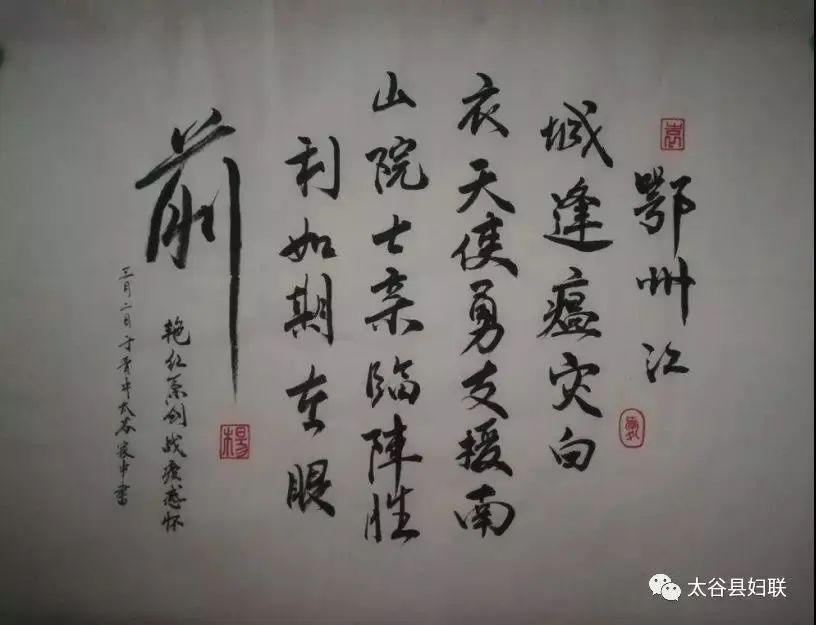 鄂州江
城逢瘟灾白
衣天使勇支援南
山院士亲临陣胜
利如期在眼
前
艳红原创战疫感怀
三月二日于晋中太谷家中书
楊
太谷县妇联